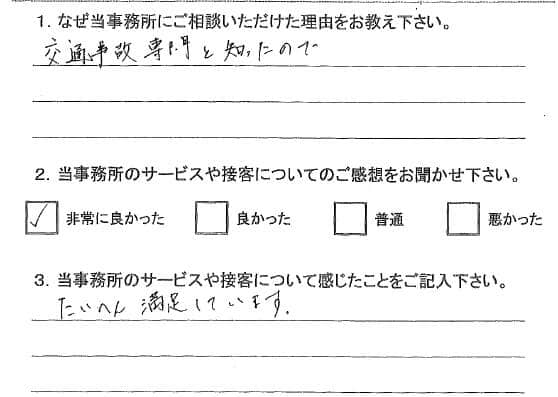 1. なぜ当事務所にご相談いただけた理由をお教え下さい。
交通事故専門と知ったので
2. 当事務所のサービスや接客についてのご感想をお聞かせ下さい。
☑ 非常に良かった □ 良かった □ 普通 □ 悪かった
3. 当事務所のサービスや接客について感じたことをご記入下さい。
たいへん満足しています.